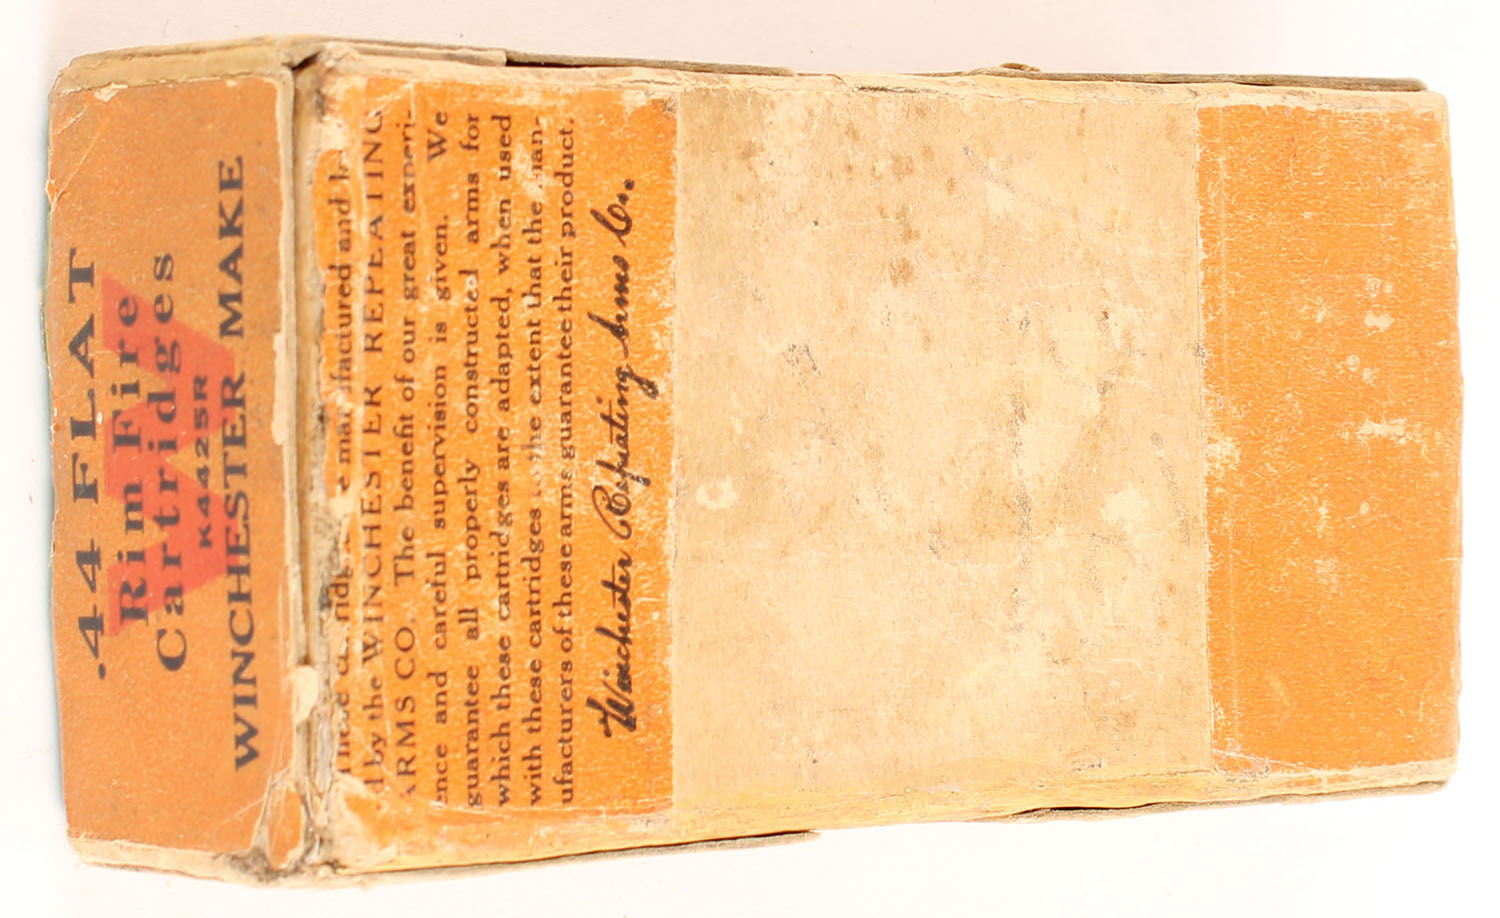 .44 FLAT
Rim Fire
Cartridges
K4425R
WINCHESTER MAKE
W
manufactured and
d by the WINCHESTER REPEATING
ARMS CO. The benefit of our great experi-
ence and careful supervision is given. We
guarantee all properly constructed arms for
which these cartridges are adapted, when used
with these cartridges to the extent that the man-
ufacturers of these arms guarantee their product.
Winchester Repeating Arms Co.